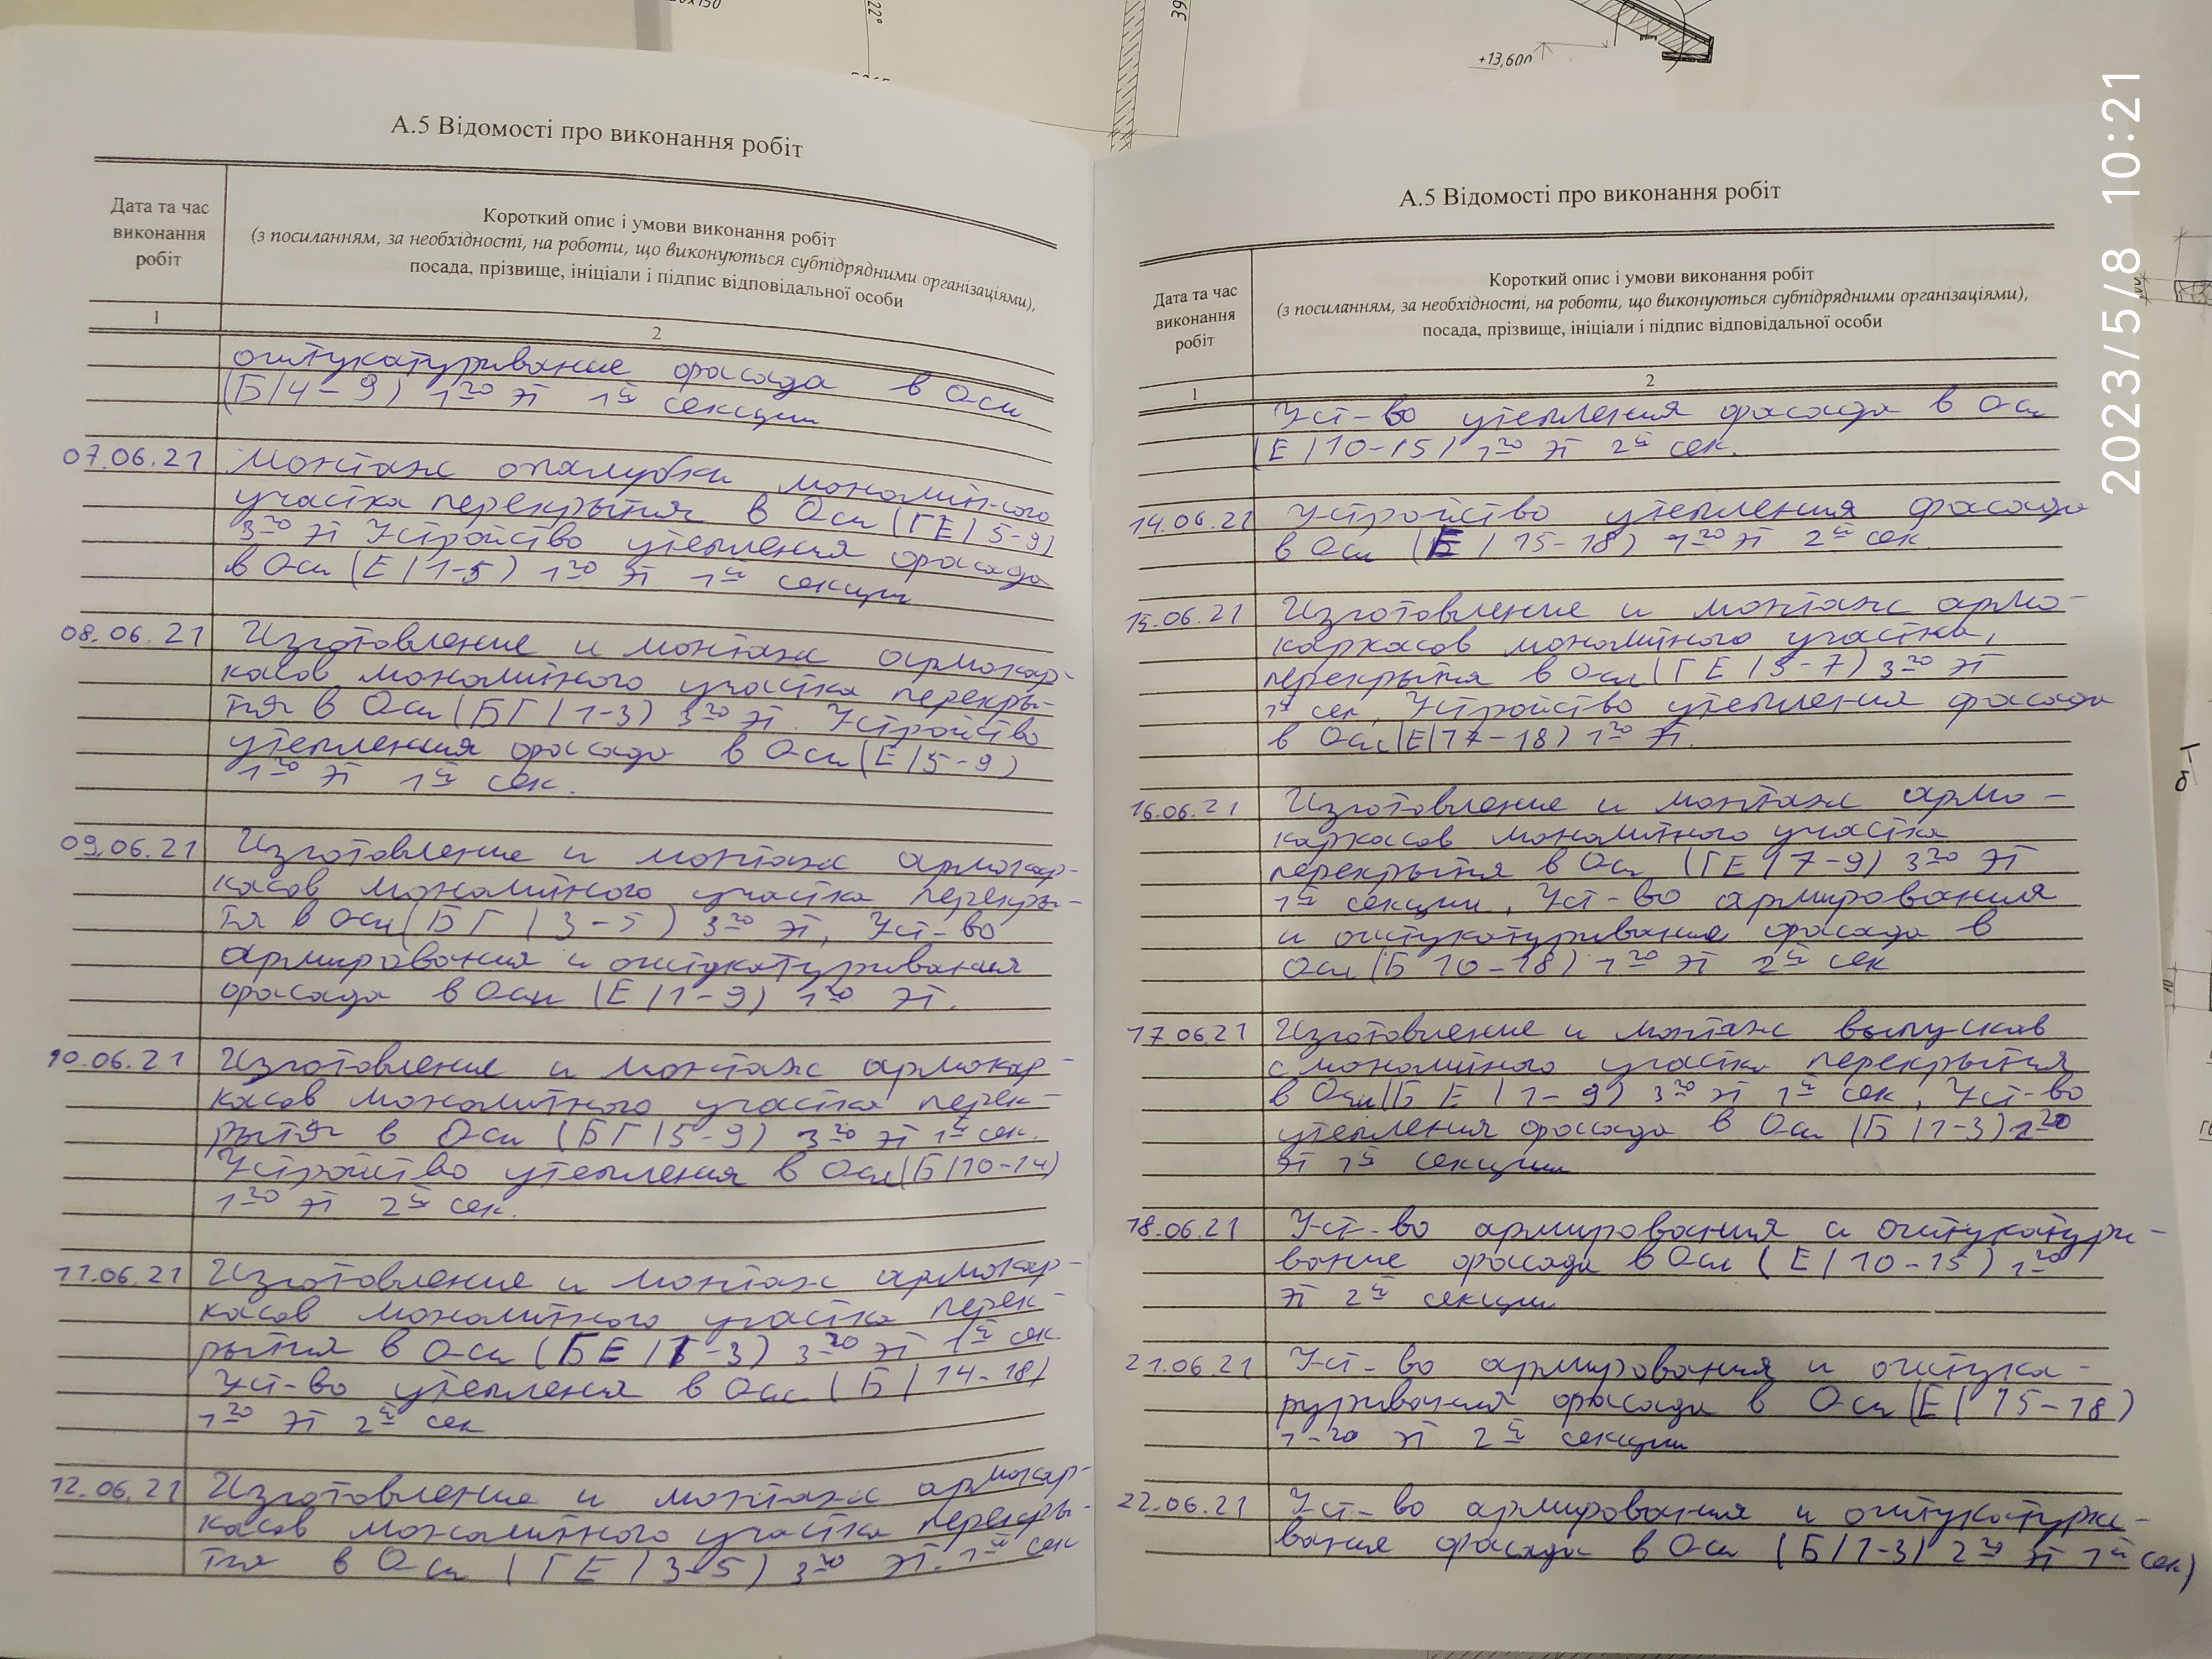 20x150
22°
39
+13,600
2023/5/8 10:21
А.5 Відомості про виконання робіт
Дата та час
виконання
робіт
Короткий опис і умови виконання робіт
(з посиланням, за необхідності, на роботи, що виконуються субпідрядними організаціями),
посада, прізвище, ініціали і підпис відповідальної особи
1
2
оштукатуривание фасада в Оси
(Б/4-9) 1го эт 1й секции
07.06.21 Монтаж опалубки монолит-ного
участка перекрытия в Оси (ГЕ/5-9)
3го эт Устройство утепления фасада
в Оси (Е/1-5) 1го эт 1й секции
08.06.21 Изготовление и монтаж армокар-
касов монолитного участка перекры-
тия в Оси (БГ/1-3) 3го эт. Устройство
утепления фасада в Оси (Е/5-9)
1го эт 1й сек.
09.06.21 Изготовление и монтаж армокар-
касов монолитного участка перекры-
тя в Оси (БГ/3-5) 3го эт, Уст-во
армирования и оштукатуривания
фасада в Оси (Е/1-9) 1го эт.
10.06.21 Изготовление и монтаж армокар-
касов монолитного участка перек-
рытия в Оси (БГ/5-9) 3го эт 1й сек.
Устройство утепления в Оси (Б/10-14)
1го эт 2й сек.
11.06.21 Изготовление и монтаж армокар-
касов монолитного участка перек-
рытия в Оси (БЕ/1-3) 3го эт 1й сек.
Уст-во утепления в Оси (Б/14-18)
1го эт 2й сек
12.06.21 Изготовление и монтаж армокар-
касов монолитного участка перекры-
тия в Оси (ГЕ/3-5) 3го эт. 1й сек
А.5 Відомості про виконання робіт
Дата та час
виконання
робіт
Короткий опис і умови виконання робіт
(з посиланням, за необхідності, на роботи, що виконуються субпідрядними організаціями),
посада, прізвище, ініціали і підпис відповідальної особи
1
2
Уст-во утепления фасада в Оси
(Е/10-15) 1го эт 2й сек.
14.06.21 Устройство утепления фасада
в Оси (Е/15-18) 1го эт 2й сек
15.06.21 Изготовление и монтаж армо-
каркасов монолитного участка,
перекрытя в Оси (ГЕ/5-7) 3го эт
1й сек, Устройство утепления фасада
в Оси (Е/17-18) 1го эт.
16.06.21 Изготовление и монтаж армо-
каркасов монолитного участка
перекрытя в Оси (ГЕ/7-9) 3го эт
1й секции, Уст-во армирования
и оштукатуривания фасада в
Оси (Б 10-18) 1го эт 2й сек
17.06.21 Изготовление и монтаж выпусков
с монолитного участка перекрытия
в Оси (Б Е/1-9) 3го эт 1й сек, Уст-во
утепления фасада в Оси (Б/1-3) 2го
эт 1й секции
18.06.21 Уст-во армирования и оштукатури-
вание фасада в Оси (Е/10-15) 1го
эт 2й секции
21.06.21 Уст-во армирования и оштука-
руривания фасада в Оси (Е/15-18)
1-го эт 2й секции
22.06.21 Уст-во армирования и оштукатури-
вания фасада в Оси (Б/1-3) 2го эт 1й сек)